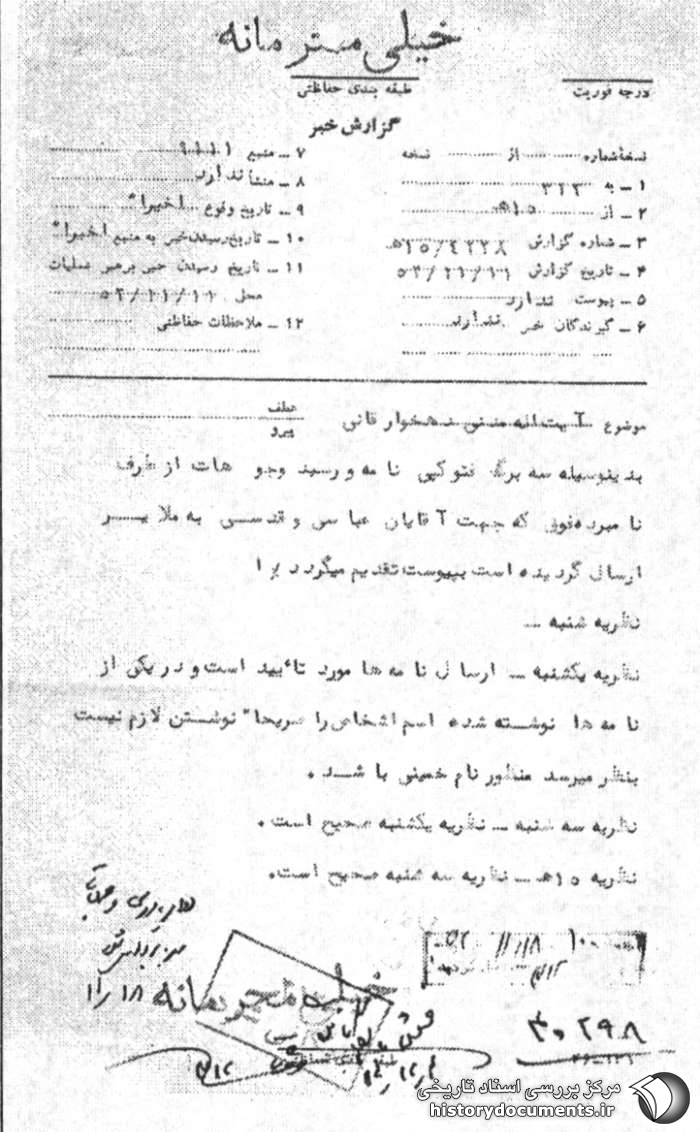 خیلی محرمانه
طبقه بندی حفاظتی
درجه فوریت
گزارش خبر
نسخه‌شماره ........ از ........ نسخه
۱ ـ به ۳۱۲
۲ ـ از ۱۵ه
۳ ـ شماره گزارش
۴ ـ تاریخ گزارش
۵ ـ پیوست ندارد
۶ ـ گیرندگان خبر ندارد
۷ ـ منبع ۹۱۱۱
۸ ـ منشأ ندارد
۹ ـ تاریخ وقوع اخیرا"
۱۰ ـ تاریخ رسیدن خبر به منبع اخیرا"
۱۱ ـ تاریخ رسیدن خبر برهبر عملیات
محل
۱۲ ـ ملاحظات حفاظتی
موضوع آیت‌اله مدنی دهخوارقانی
عطف
پیرو
بدینوسیله سه برگ فتوکپی نامه و رسید وجوهات از طرف
نامبرده فوق که جهت آقایان عباسی و قدسی به ملایر
ارسال گردیده است بپیوست تقدیم میگردد
نظریه شنبه ـ
نظریه یکشنبه ـ ارسال نامه‌ها مورد تأیید است و در یکی از
نامه‌ها نوشته شده اسم اشخاص را صریحا" نوشتن لازم نیست
بنظر میرسد منظور نام خمینی باشد .
نظریه سه شنبه ـ نظریه یکشنبه صحیح است .
نظریه ۱۵ه ـ نظریه سه شنبه صحیح است.
خیلی محرمانه
۳۰۲۹۸
مرکز بررسی اسناد تاریخی
historydocuments.ir